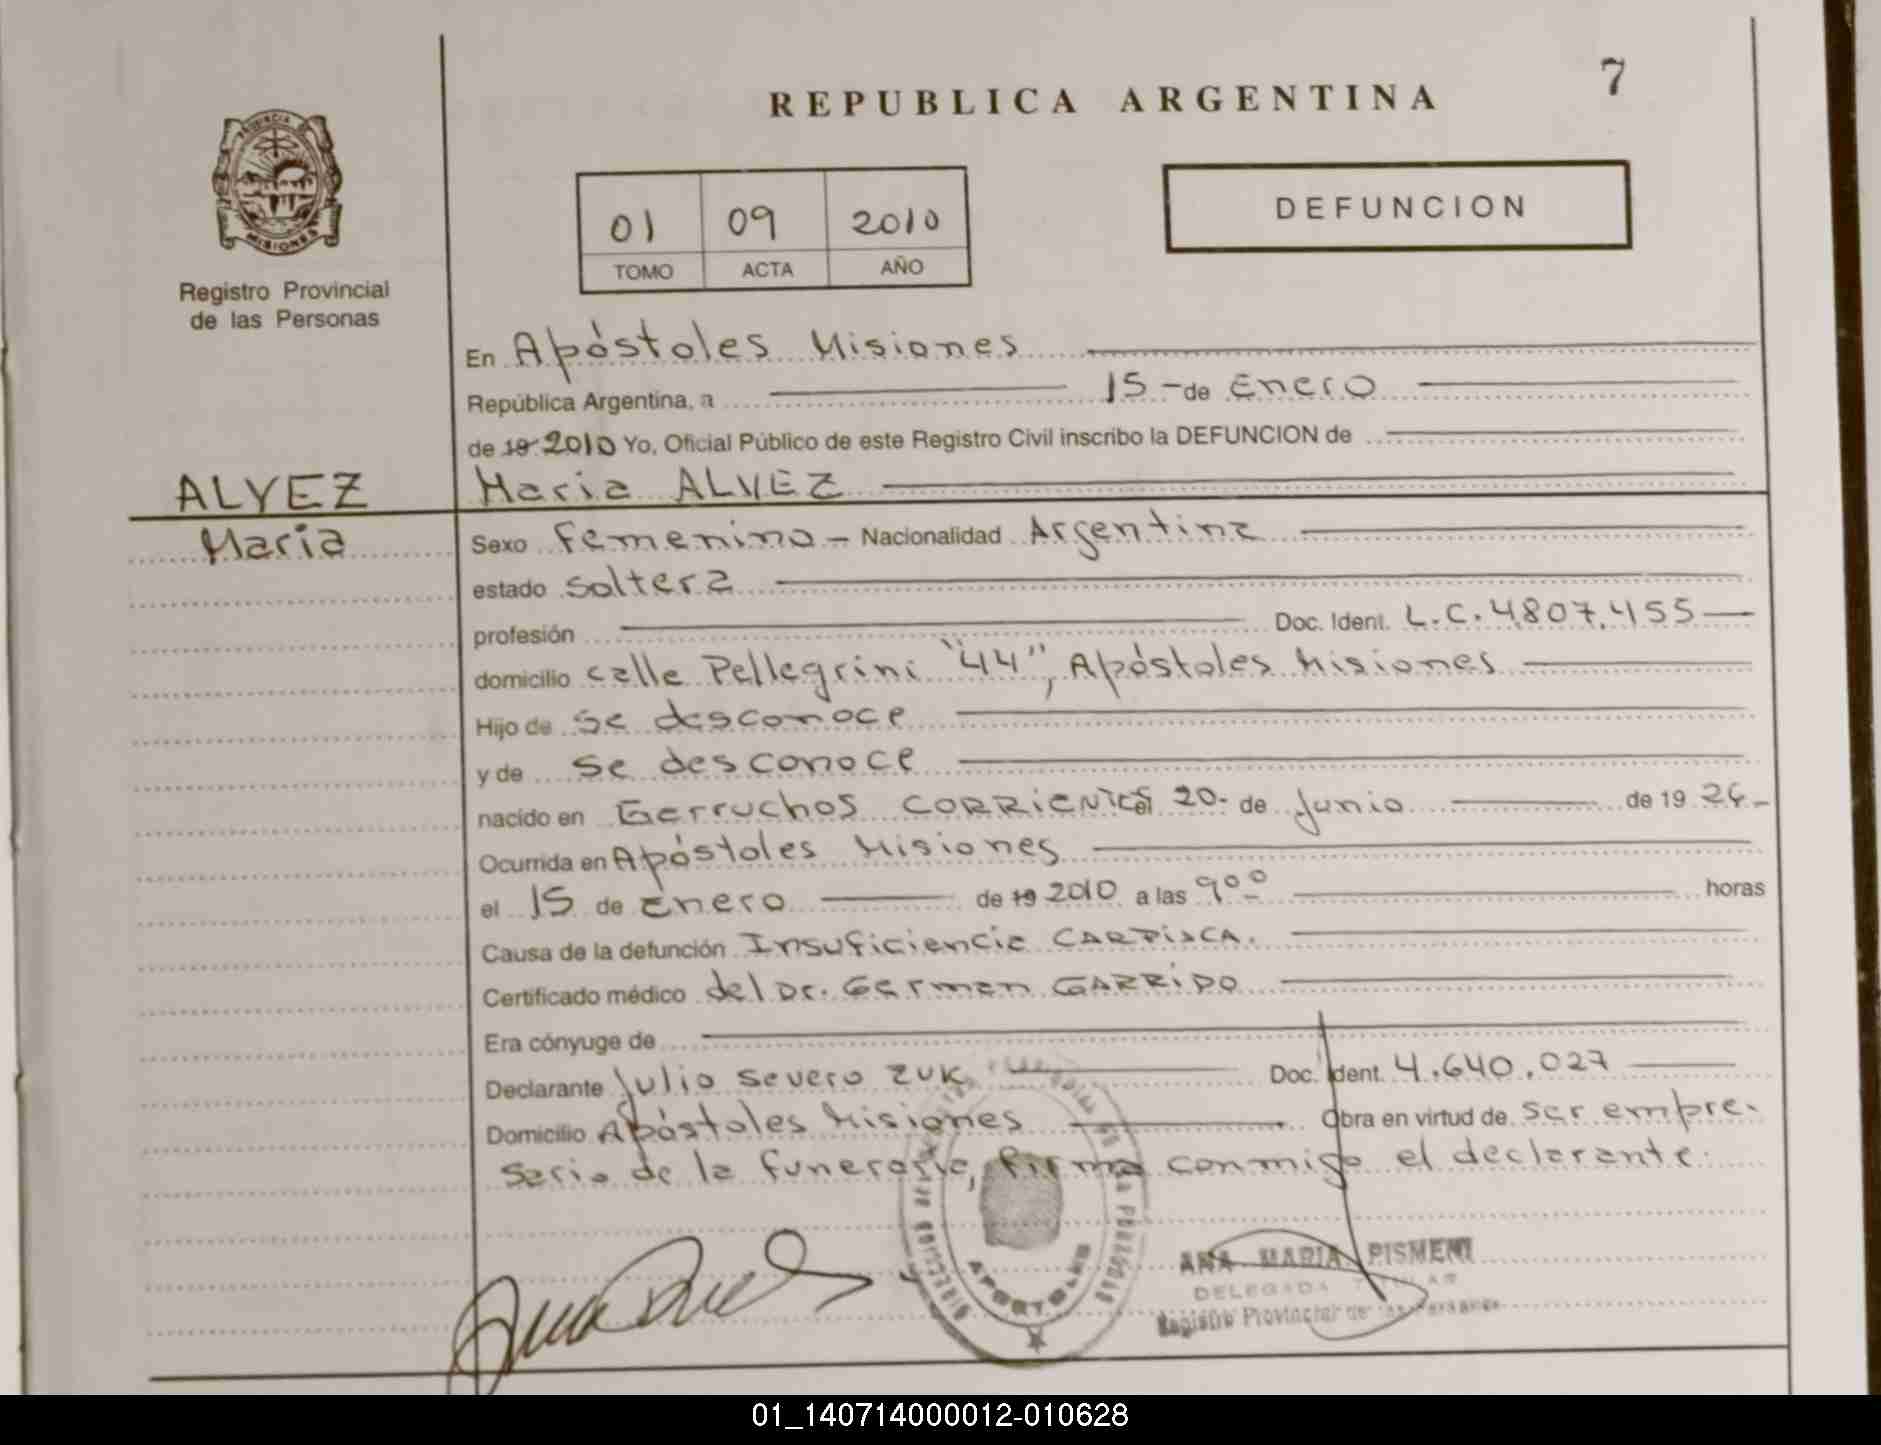 7
REPUBLICA ARGENTINA
PROVINCIA DE
MISIONES
Registro Provincial
de las Personas
01 09 2010
TOMO ACTA AÑO
DEFUNCION
En Apóstoles Misiones
República Argentina, a 15 - de Enero
de 19 2010 Yo, Oficial Público de este Registro Civil inscribo la DEFUNCION de
ALVEZ
Maria
Maria ALVEZ
Sexo Femenino - Nacionalidad Argentina
estado soltera
profesión Doc. Ident. L.C. 4.807.455
domicilio calle Pellegrini "44", Apóstoles Misiones
Hijo de se desconoce
y de se desconoce
nacido en Garruchos CORRIENTES el 20- de Junio de 19 26-
Ocurrida en Apóstoles Misiones
el 15 de Enero de 19 2010 a las 9⁰⁰ horas
Causa de la defunción Insuficiencia CARDIACA.
Certificado médico del Dr. German GARRIDO
Era cónyuge de
Declarante Julio Severo ZUK Doc. Ident. 4.640.027
Domicilio Apóstoles Misiones Obra en virtud de ser empre-
sario de la funeraria, firma conmigo el declarante.
APOSTOLES
ANA MARIA PISMENI
DELEGADA TITULAR
Registro Provincial de las Personas
01_140714000012-010628